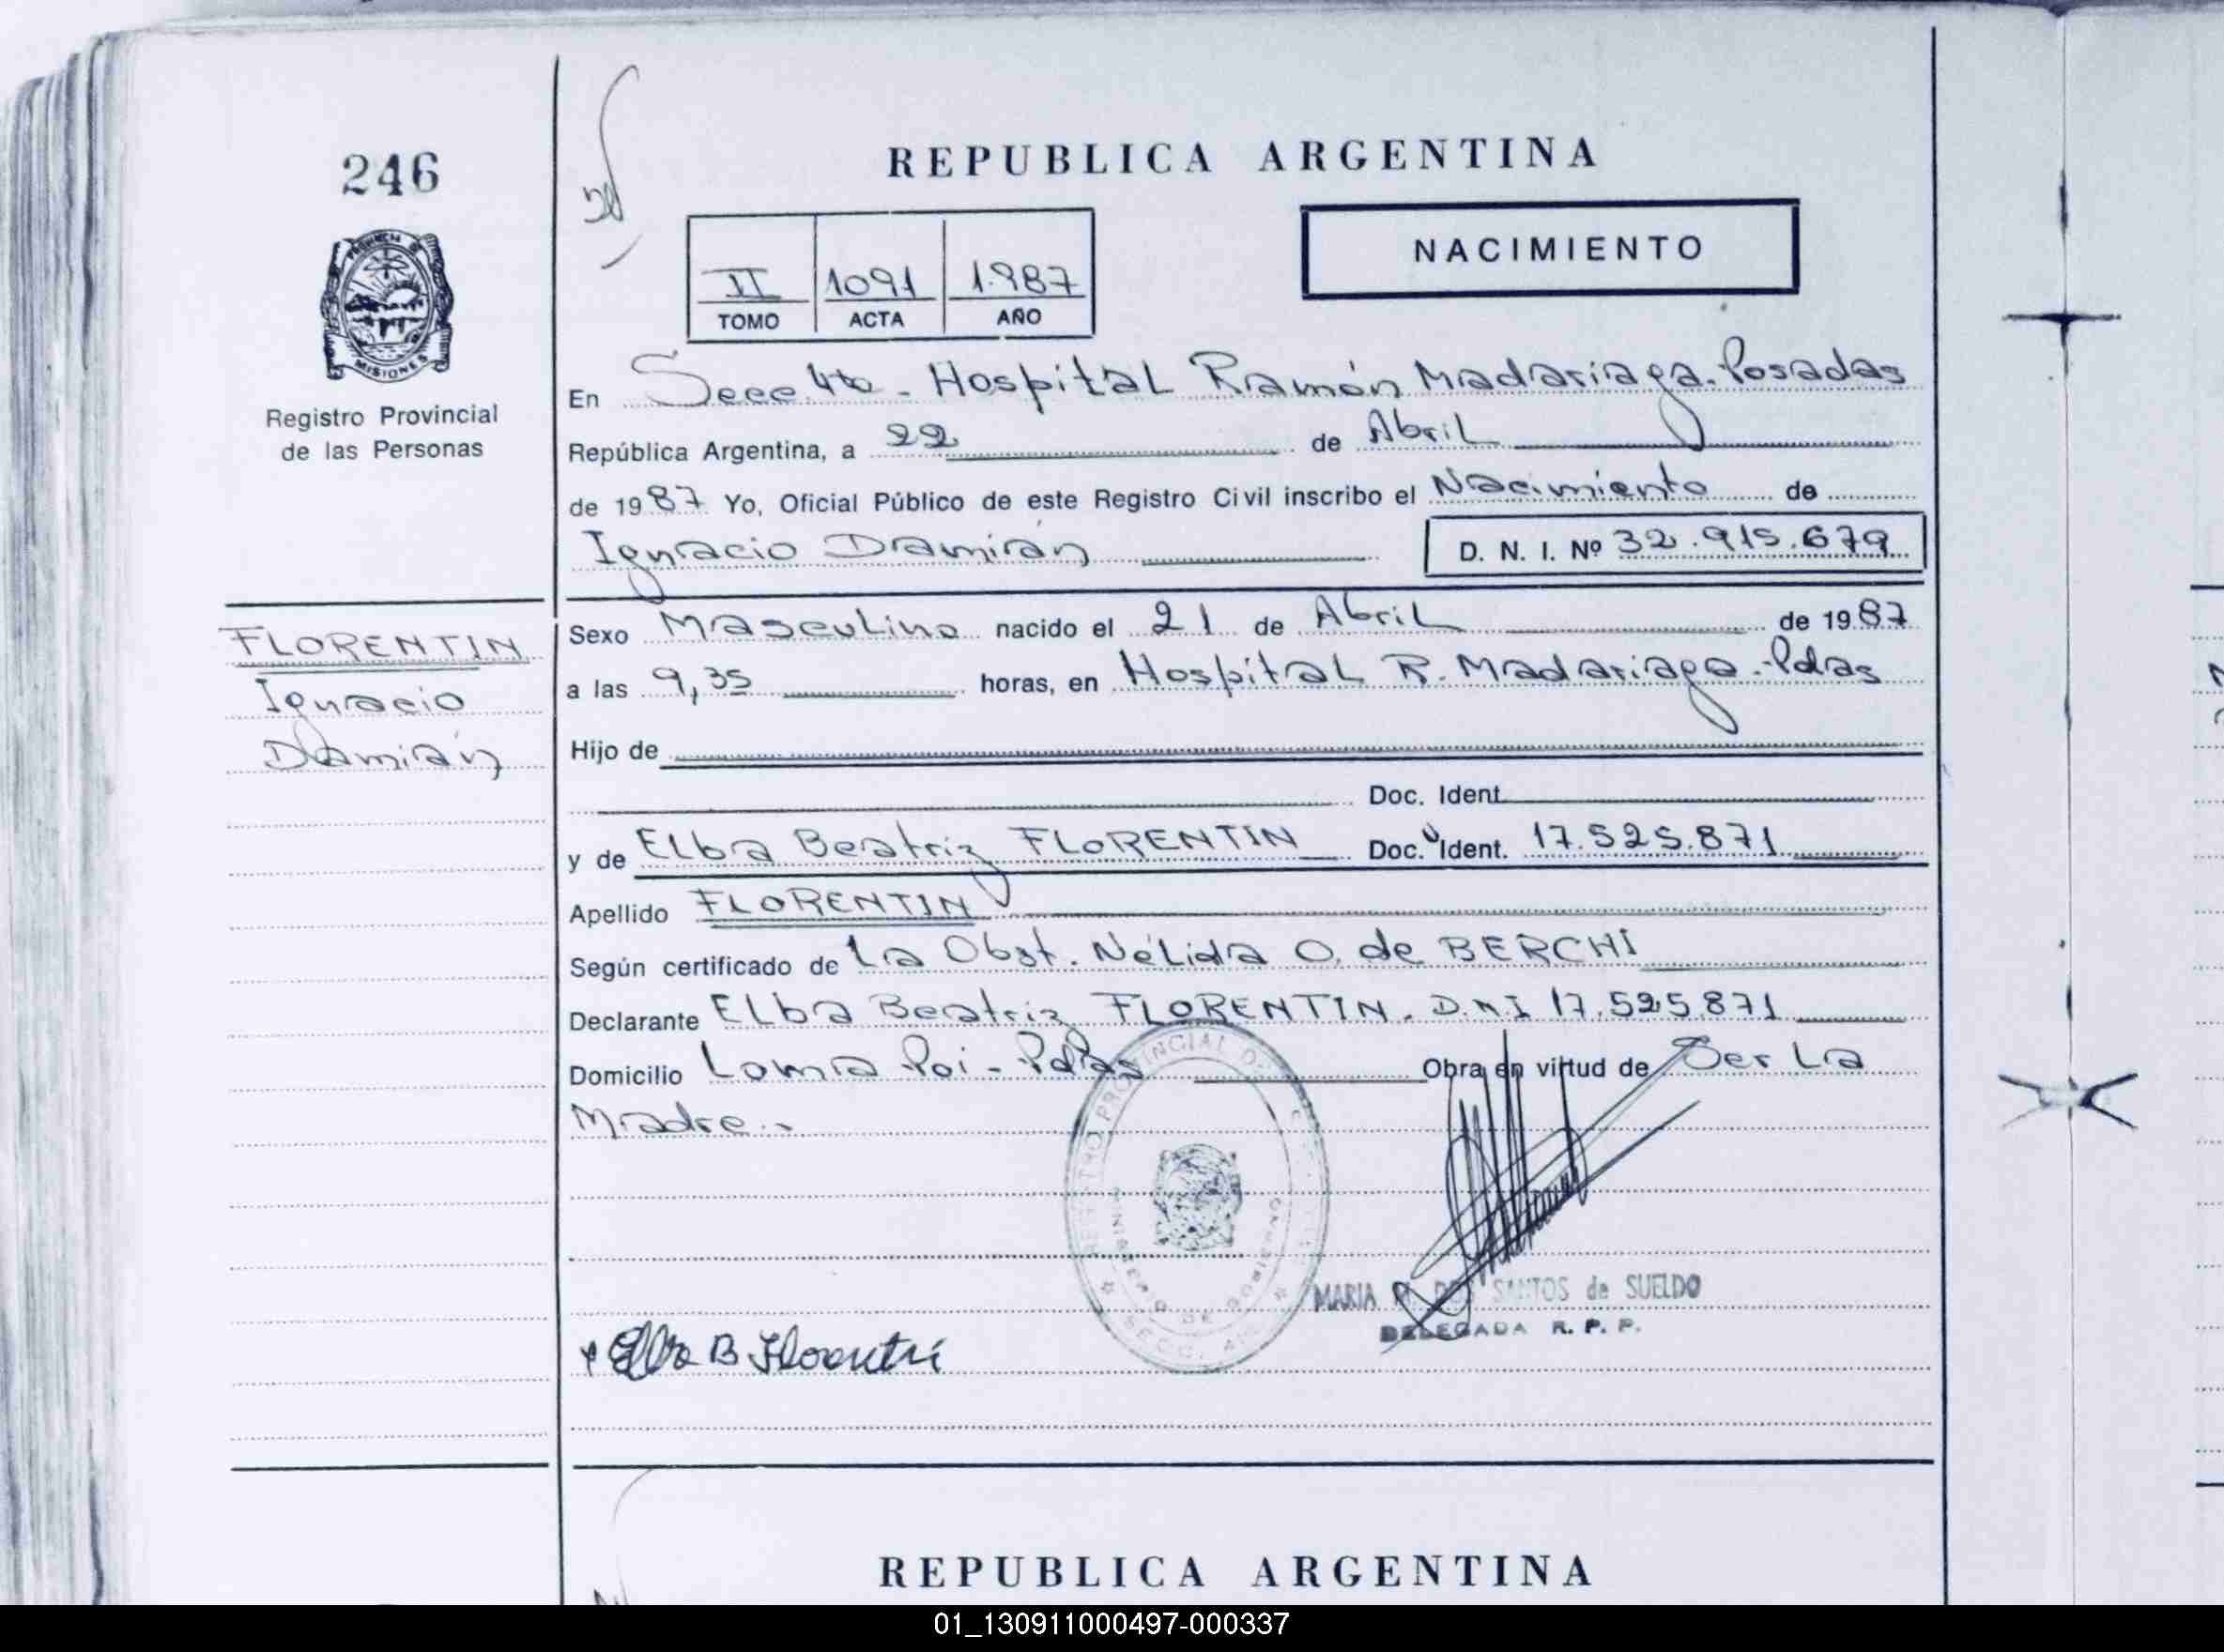 246
PROVINCIA DE
MISIONES
Registro Provincial
de las Personas
FLORENTIN
Ignacio
Damián
REPUBLICA ARGENTINA
NACIMIENTO
II 1091 1.987
TOMO ACTA AÑO
En Secc 4ta - Hospital Ramón Madariaga. Posadas
República Argentina, a 22 de Abril
de 1987 Yo, Oficial Público de este Registro Civil inscribo el Nacimiento de
Ignacio Damián D. N. I. Nº 32.915.679
Sexo Masculino nacido el 21 de Abril de 1987
a las 9,35 horas, en Hospital R. Madariaga - Pdas
Hijo de
Doc. Ident.
y de Elba Beatriz FLORENTIN Doc. Ident. 17.525.871
Apellido FLORENTIN
Según certificado de La Obst. Nélida O. de BERCHI
Declarante Elba Beatriz FLORENTIN. D.N.I 17.525.871
Domicilio Loma Poi - Pdas Obra en virtud de Ser La
Madre.-
MARIA DOS SANTOS de SUELDO
DELEGADA R. P. P.
Elba B Florentin
REPUBLICA ARGENTINA
01_130911000497-000337